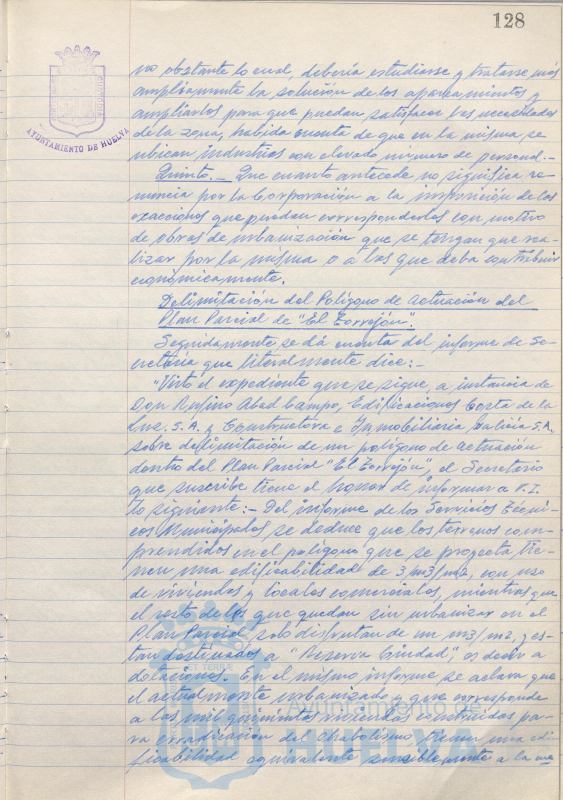 128
AYUNTAMIENTO DE HUELVA
no obstante lo cual, debería estudiarse y tratarse más
ampliamente la solución de los aparcamientos y
ampliarlos para que puedan satisfacer las necesidades
de la zona, habida cuenta de que en la misma se
ubican industrias con elevado número de personal.-
Quinto.- Que cuanto antecede no significa re-
nuncia por la Corporación a la imposición de las
exacciones que puedan corresponderles con motivo
de obras de urbanización que se tengan que rea-
lizar por la misma o a las que deba contribuir
económicamente.
Delimitación del Polígono de actuación del
Plan Parcial de "El Torrejón".
Seguidamente se dá cuenta del informe de Se-
cretaría que literalmente dice:-
"Visto el expediente que se sigue, a instancia de
Don Rufino Abad Campo, Edificaciones Costa de la
Luz. S.A. y Constructora e Inmobiliaria Galicia S.A.
sobre delimitación de un polígono de actuación
dentro del Plan Parcial "El Torrejón", el Secretario
que suscribe tiene el honor de informar a V.I.
lo siguiente:- Del informe de los Servicios Técni-
cos Municipales se deduce que los terrenos com-
prendidos en el polígono que se proyecta, tie-
nen una edificabilidad de 3/m3/m2, con uso
de viviendas y locales comerciales, mientras que
el resto de los que quedan sin urbanizar en el
Plan Parcial, solo disfrutan de un m3/m2, y es-
tan destinados a "Reserva Ciudad", es decir a
dotaciones. En el mismo informe se aclara que
el actualmente urbanizado y que corresponde
a las mil quinientas viviendas construidas pa-
ra erradicación del chabolismo tienen una edi-
ficabilidad equivalente sensiblemente a la me
Ayuntamiento de
HUELVA